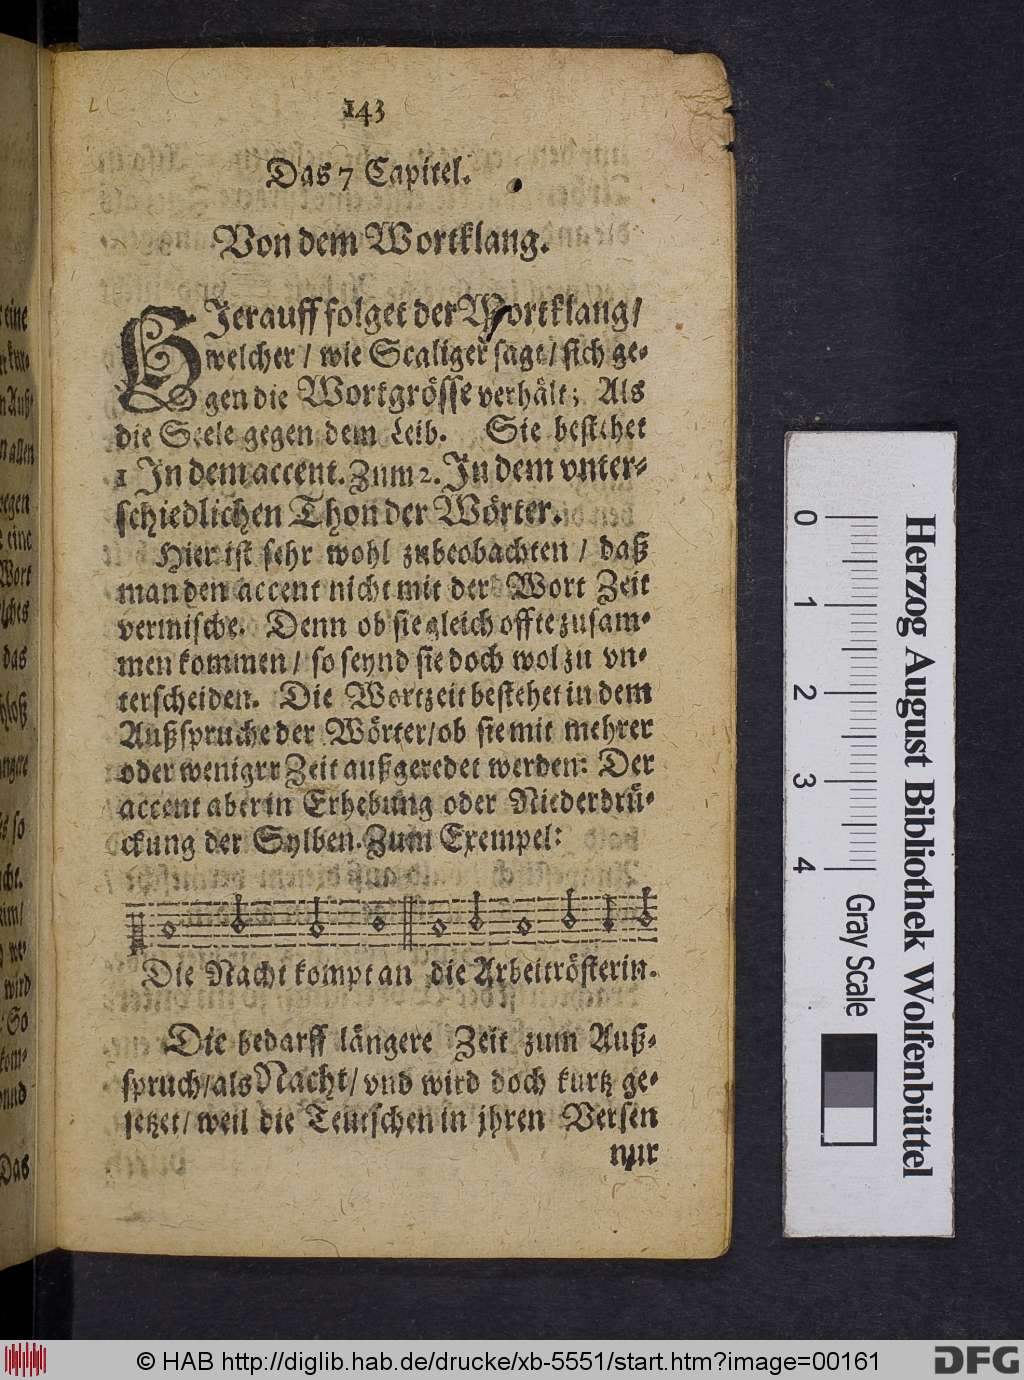 143
Das 7 Capitel.
Von dem Wortklang.
HJerauff folget der Wortklang/
welcher / wie Scaliger sagt / sich ge-
gen die Wortgrösse verhält; Als
die Seele gegen dem Leib. Sie bestehet
1 Jn dem accent. Zum 2. Jn dem vnter-
schiedlichen Thon der Wörter.
Hier ist sehr wohl zubeobachten / daß
man den accent nicht mit der Wort Zeit
vermische. Denn ob sie gleich offte zusam-
men kommen / so seynd sie doch wol zu vn-
terscheiden. Die Wortzeit bestehet in dem
Außspruche der Wörter/ ob sie mit mehrer
oder wenigrr Zeit außgeredet werden: Der
accent aber in Erhebung oder Niederdrü-
ckung der Sylben. Zum Exempel:
Die Nacht kompt an die Arbeitrösterin.
Die bedarff längere Zeit zum Auß-
spruch/ als Nacht/ vnd wird doch kurtz ge-
setzet/ weil die Teutschen in jhren Versen
nur
eine
n Auß
allen
wegen
eine
Wort
das
so
wird
So
kom-
vnnd
Das
0 1 2 3 4
Gray Scale
Herzog August Bibliothek Wolfenbüttel
© HAB http://diglib.hab.de/drucke/xb-5551/start.htm?image=00161
DFG